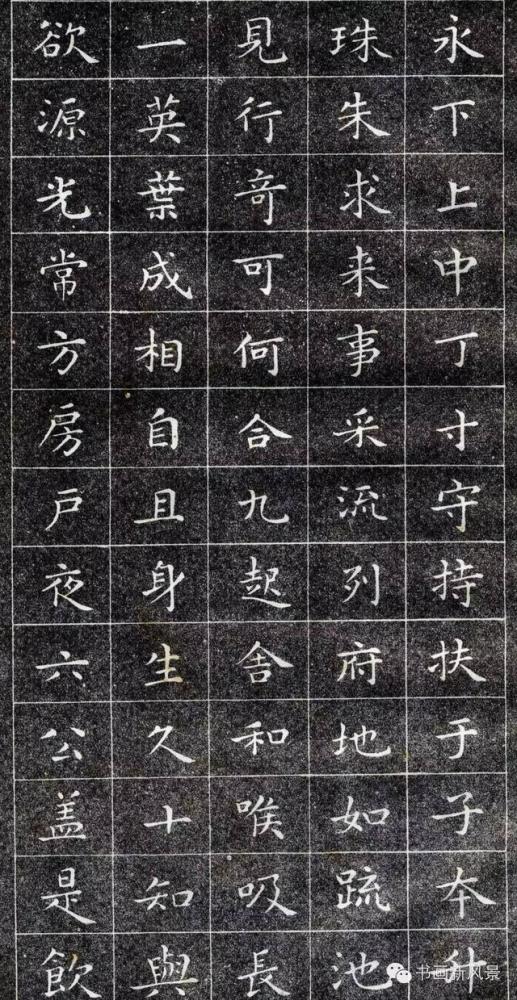 永下上中丁寸守持扶于子本升
珠朱求来事采流列府地如䟽池
見行竒可何合九起舎和喉吸長
一英葉成相自且身生久十知與
欲源光常方房戸夜六公盖是飲
书画新风景